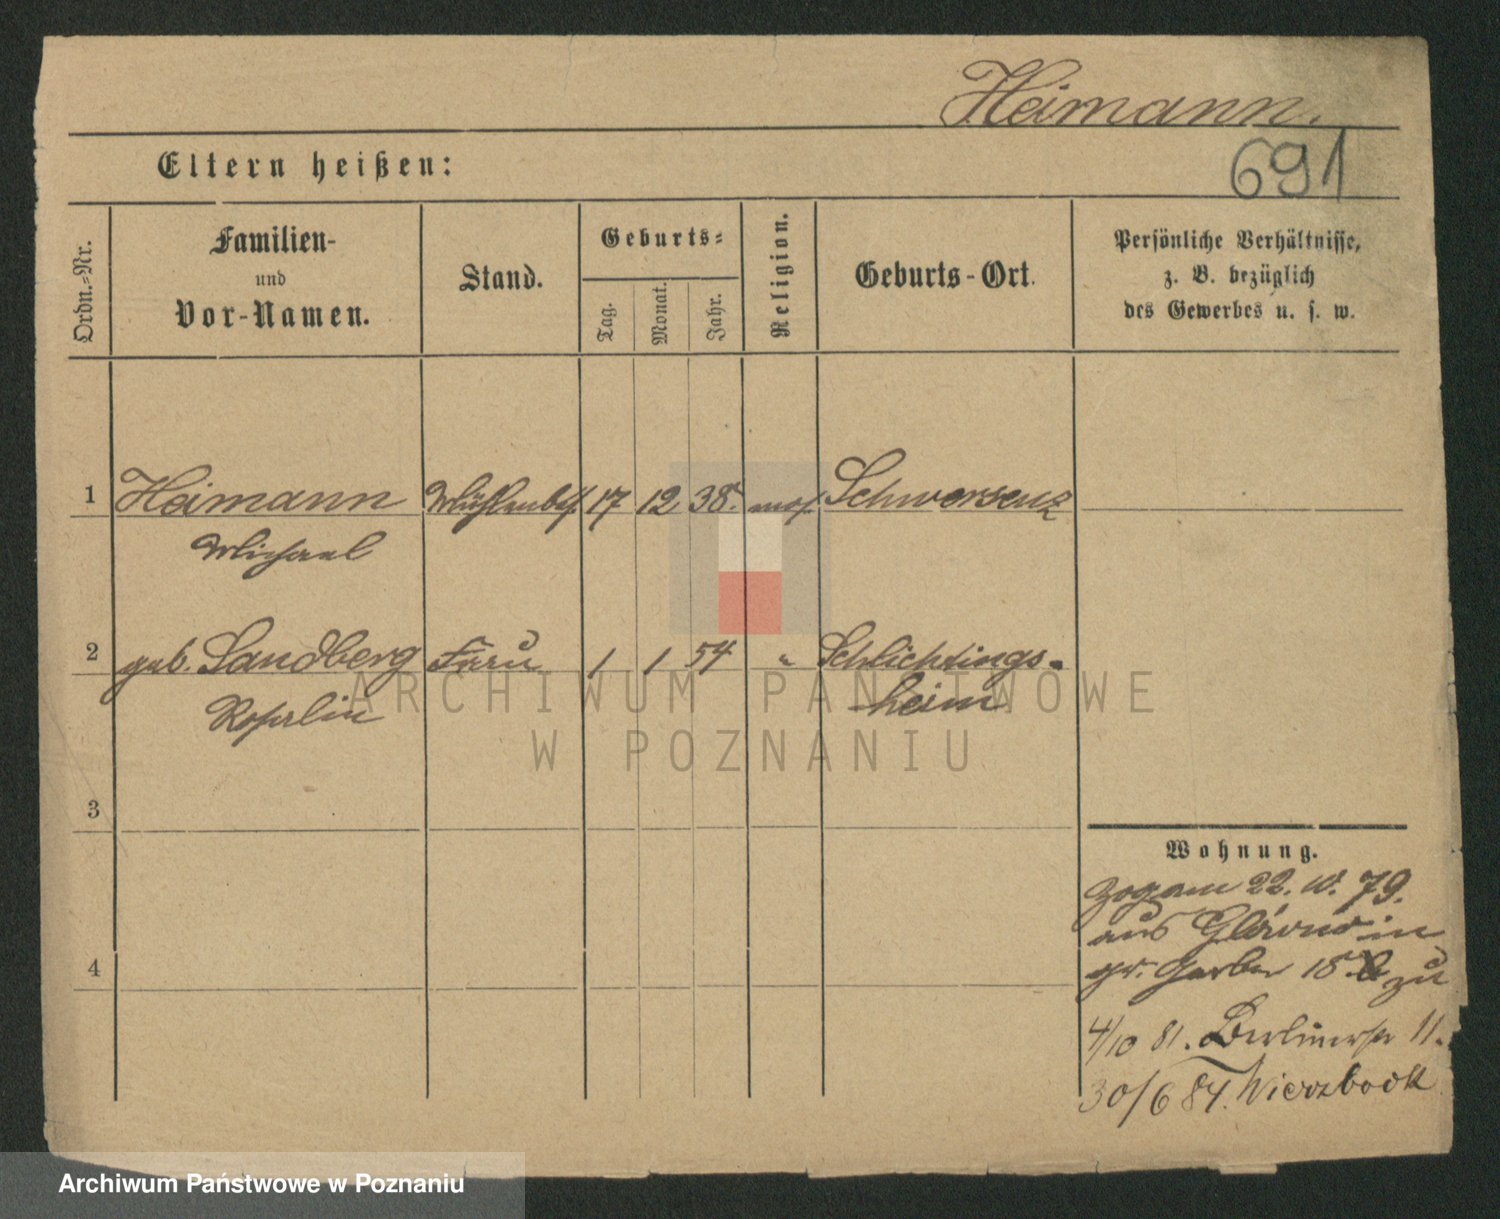 Heimann.
691
Eltern heißen:
Ordn.-Nr.
Familien-
und
Vor-Namen.
Stand.
Geburts-
Tag.
Monat.
Jahr.
Religion.
Geburts-Ort.
Persönliche Verhältnisse,
z. B. bezüglich
des Gewerbes u. s. w.
1 Heimann Mühlenbes. 17 12 38. mos. Schwersenz
Michael
2 geb. Sandberg Frau 1 1 54 " Schlichtings-
heim
Rosalie
3
4
Wohnung.
Zog am 22. 10. 79.
aus Glowno in
gr. Gerber 18 zu
4/10 81. Berlinerstr 11.
30/6 84. Wierzbock
ARCHIWUM PAŃSTWOWE
W POZNANIU
Archiwum Państwowe w Poznaniu